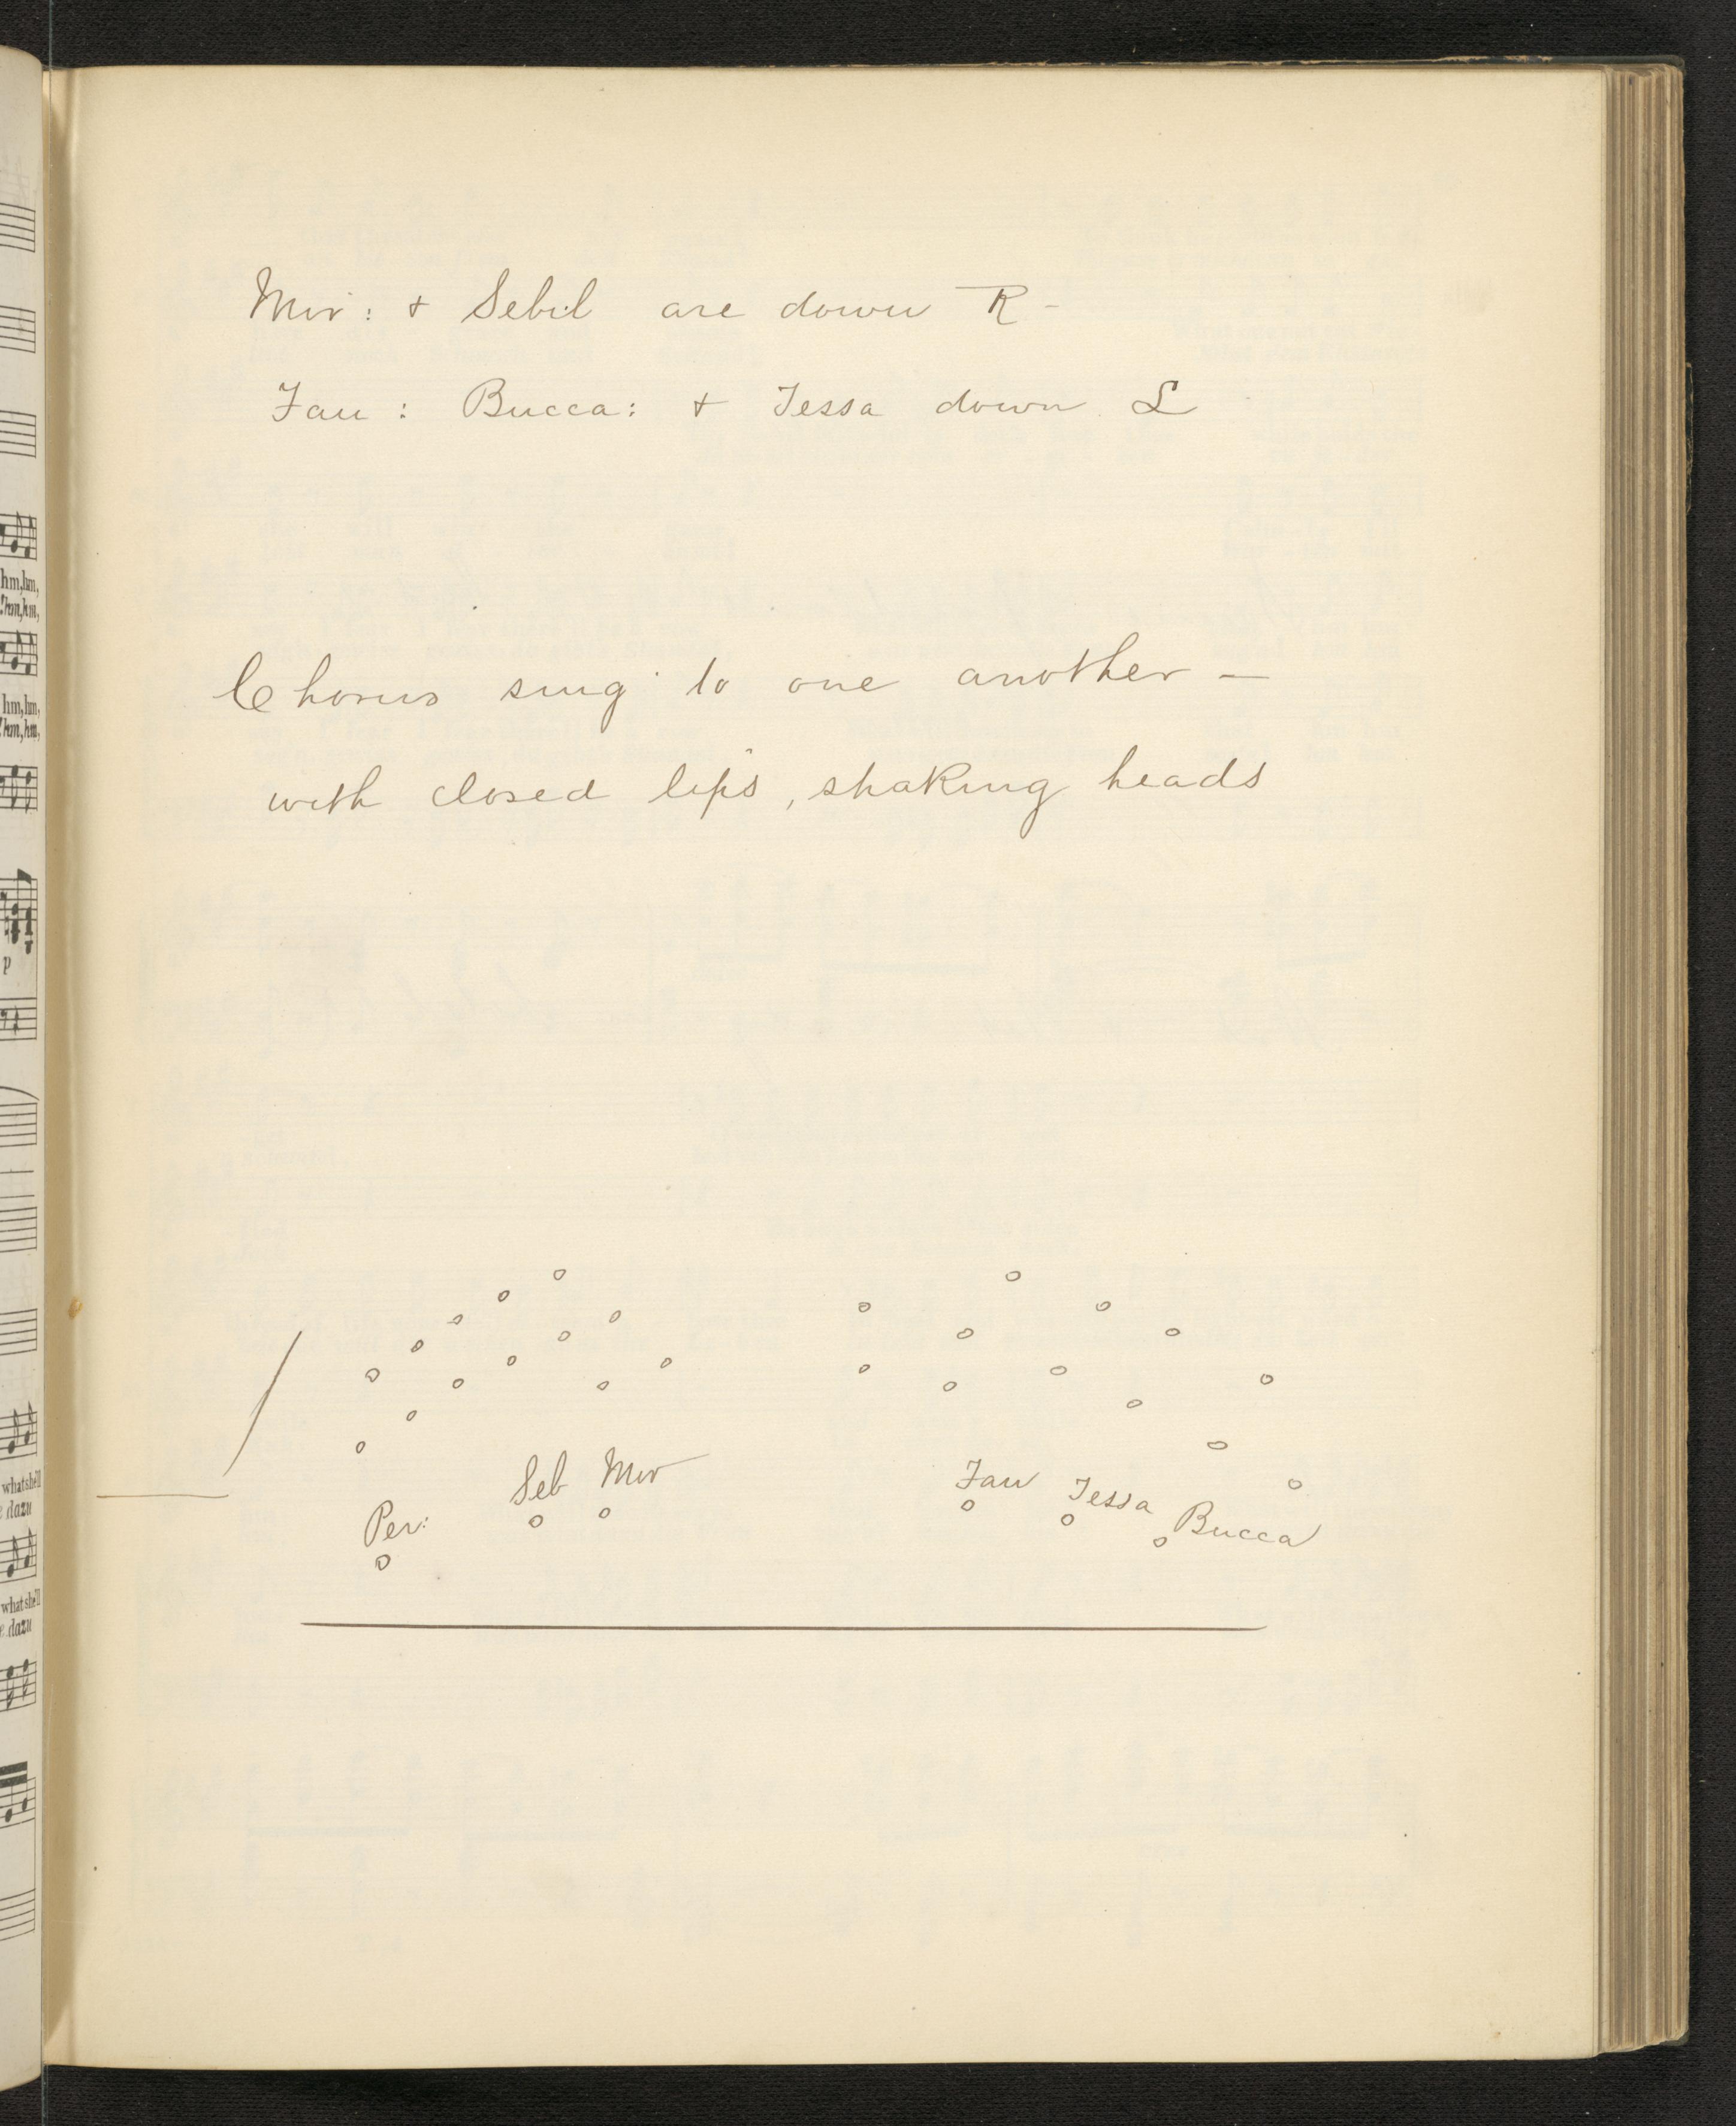 hm, hm,
hm, hm,
hm, hm,
hm, hm,
p
what she'll
dazu
what she'll
dazu
Mir: + Sebil are down R -
Fau: Bucca: + Tessa down L
Chorus sing to one another —
with closed lips, shaking heads
Seb Mir
Fau Tessa
Per: Bucca